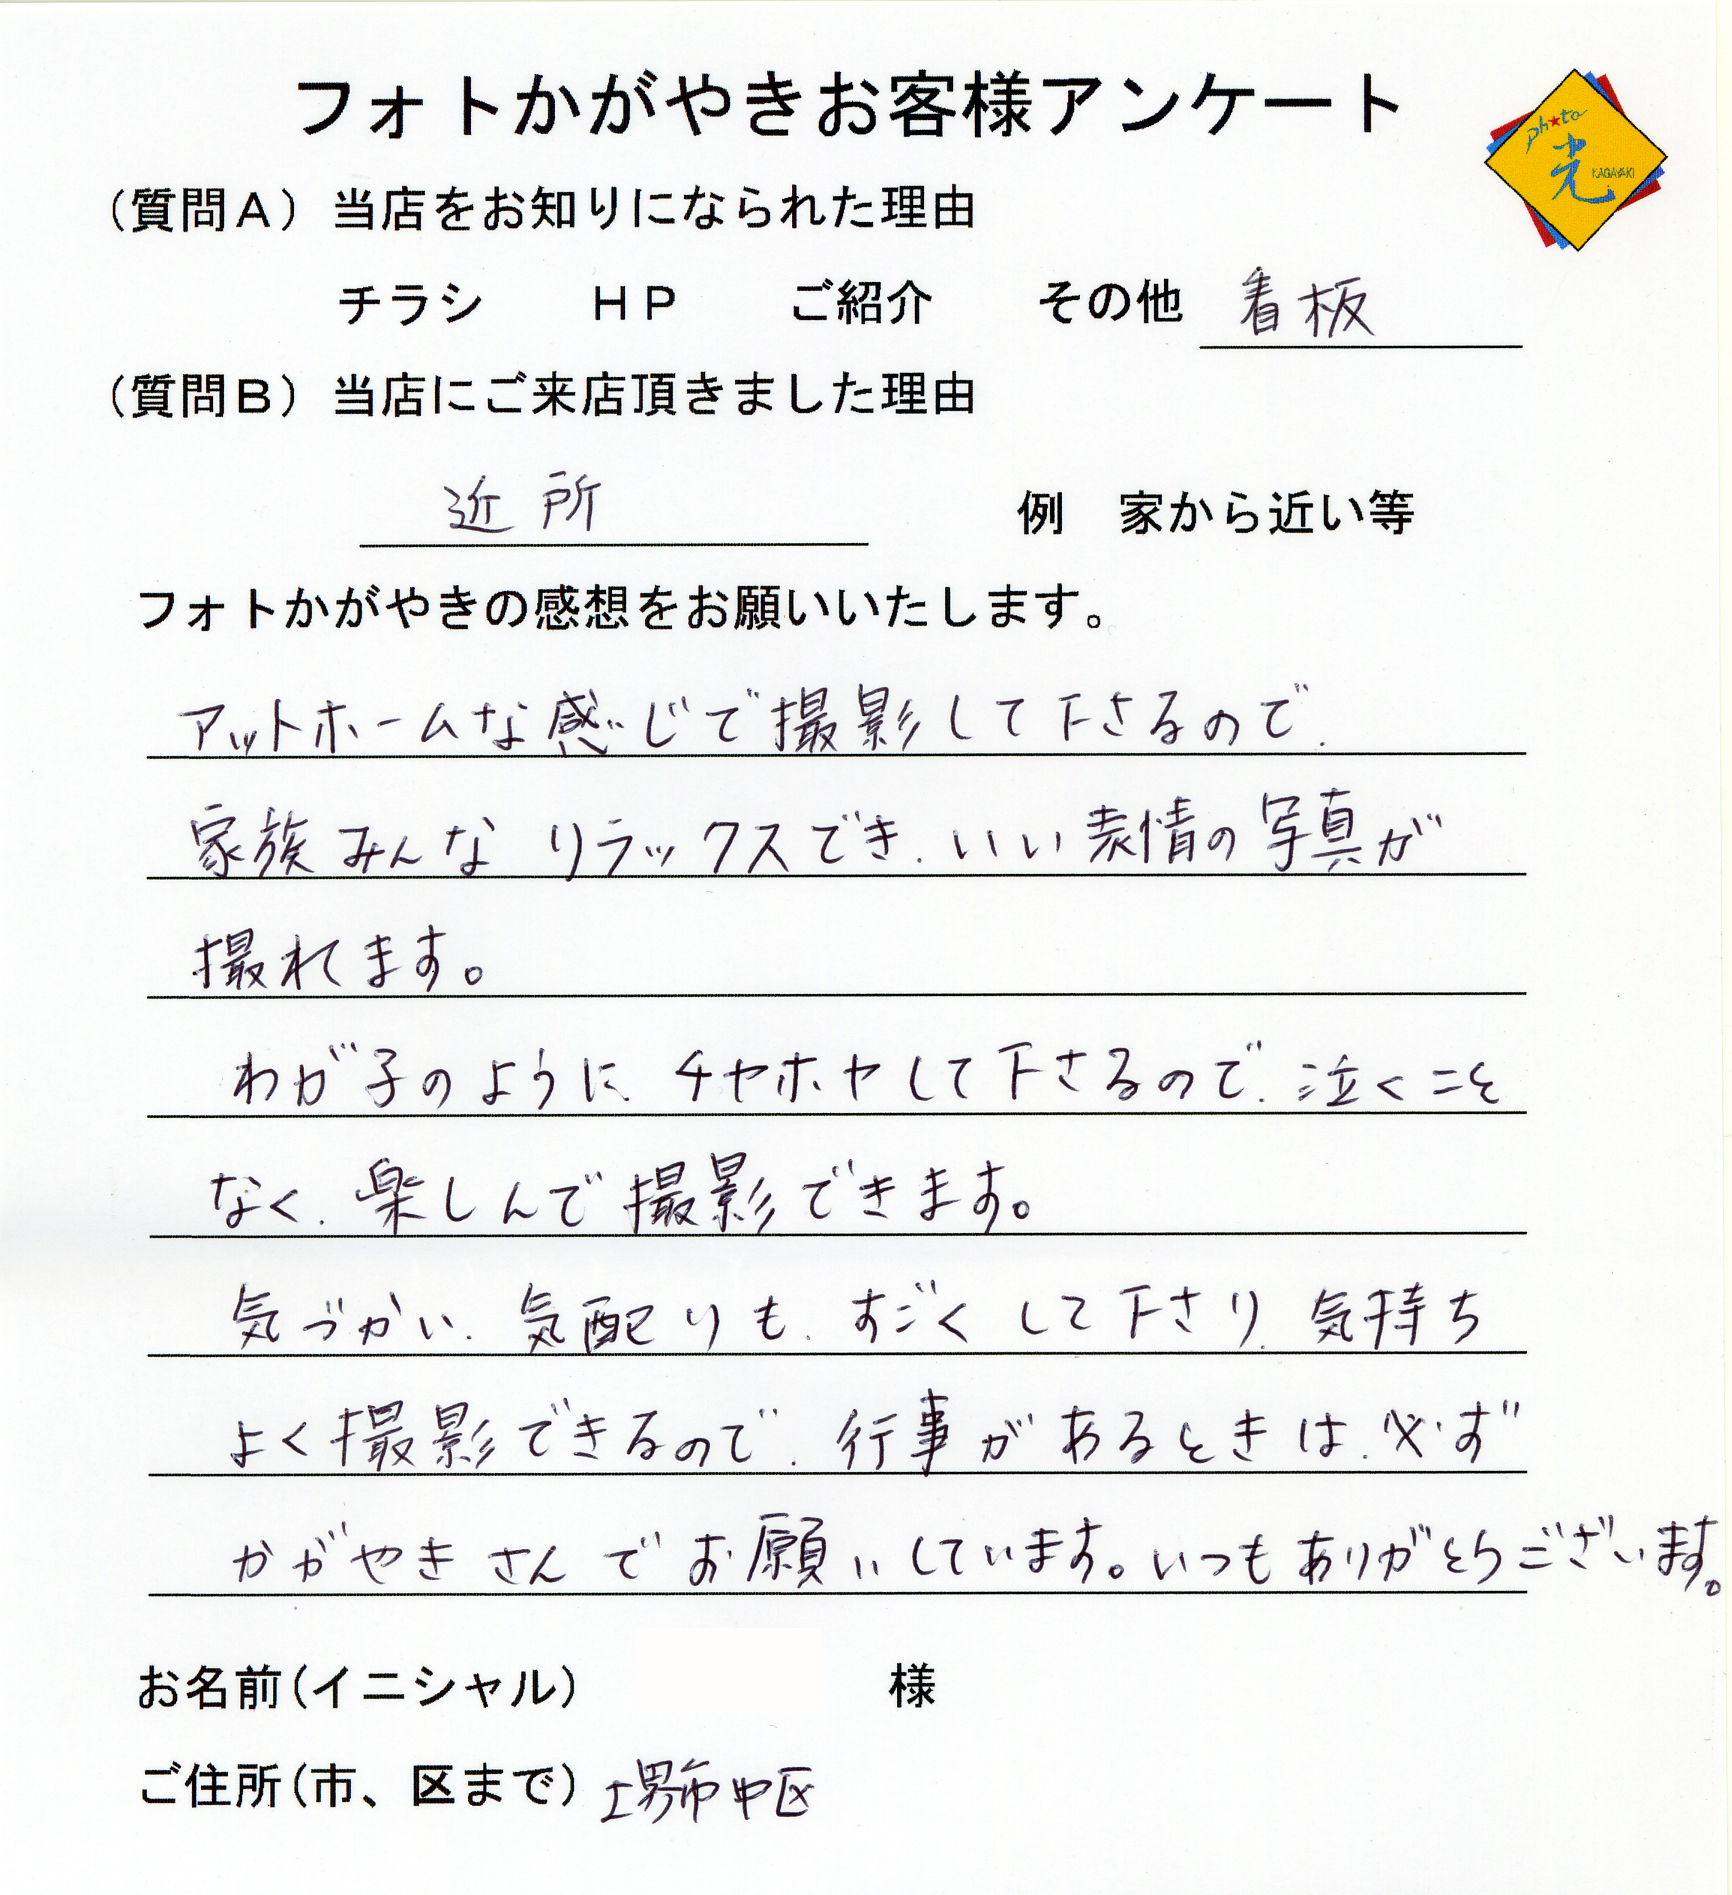 フォトかがやきお客様アンケート
photo
光
KAGAYAKI
（質問Ａ）当店をお知りになられた理由
チラシ　ＨＰ　ご紹介　その他 看板
（質問Ｂ）当店にご来店頂きました理由
近所　例　家から近い等
フォトかがやきの感想をお願いいたします。
アットホームな感じで撮影して下さるので、
家族みんな リラックスでき、いい表情の写真が
撮れます。
わが子のように、チヤホヤして下さるので、泣くこと
なく、楽しんで撮影できます。
気づかい、気配りも、すごくして下さり、気持ち
よく撮影できるので、行事があるときは、必ず
かがやきさんでお願いしています。いつもありがとうございます。
お名前(イニシャル)　様
ご住所(市、区まで) 堺市中区